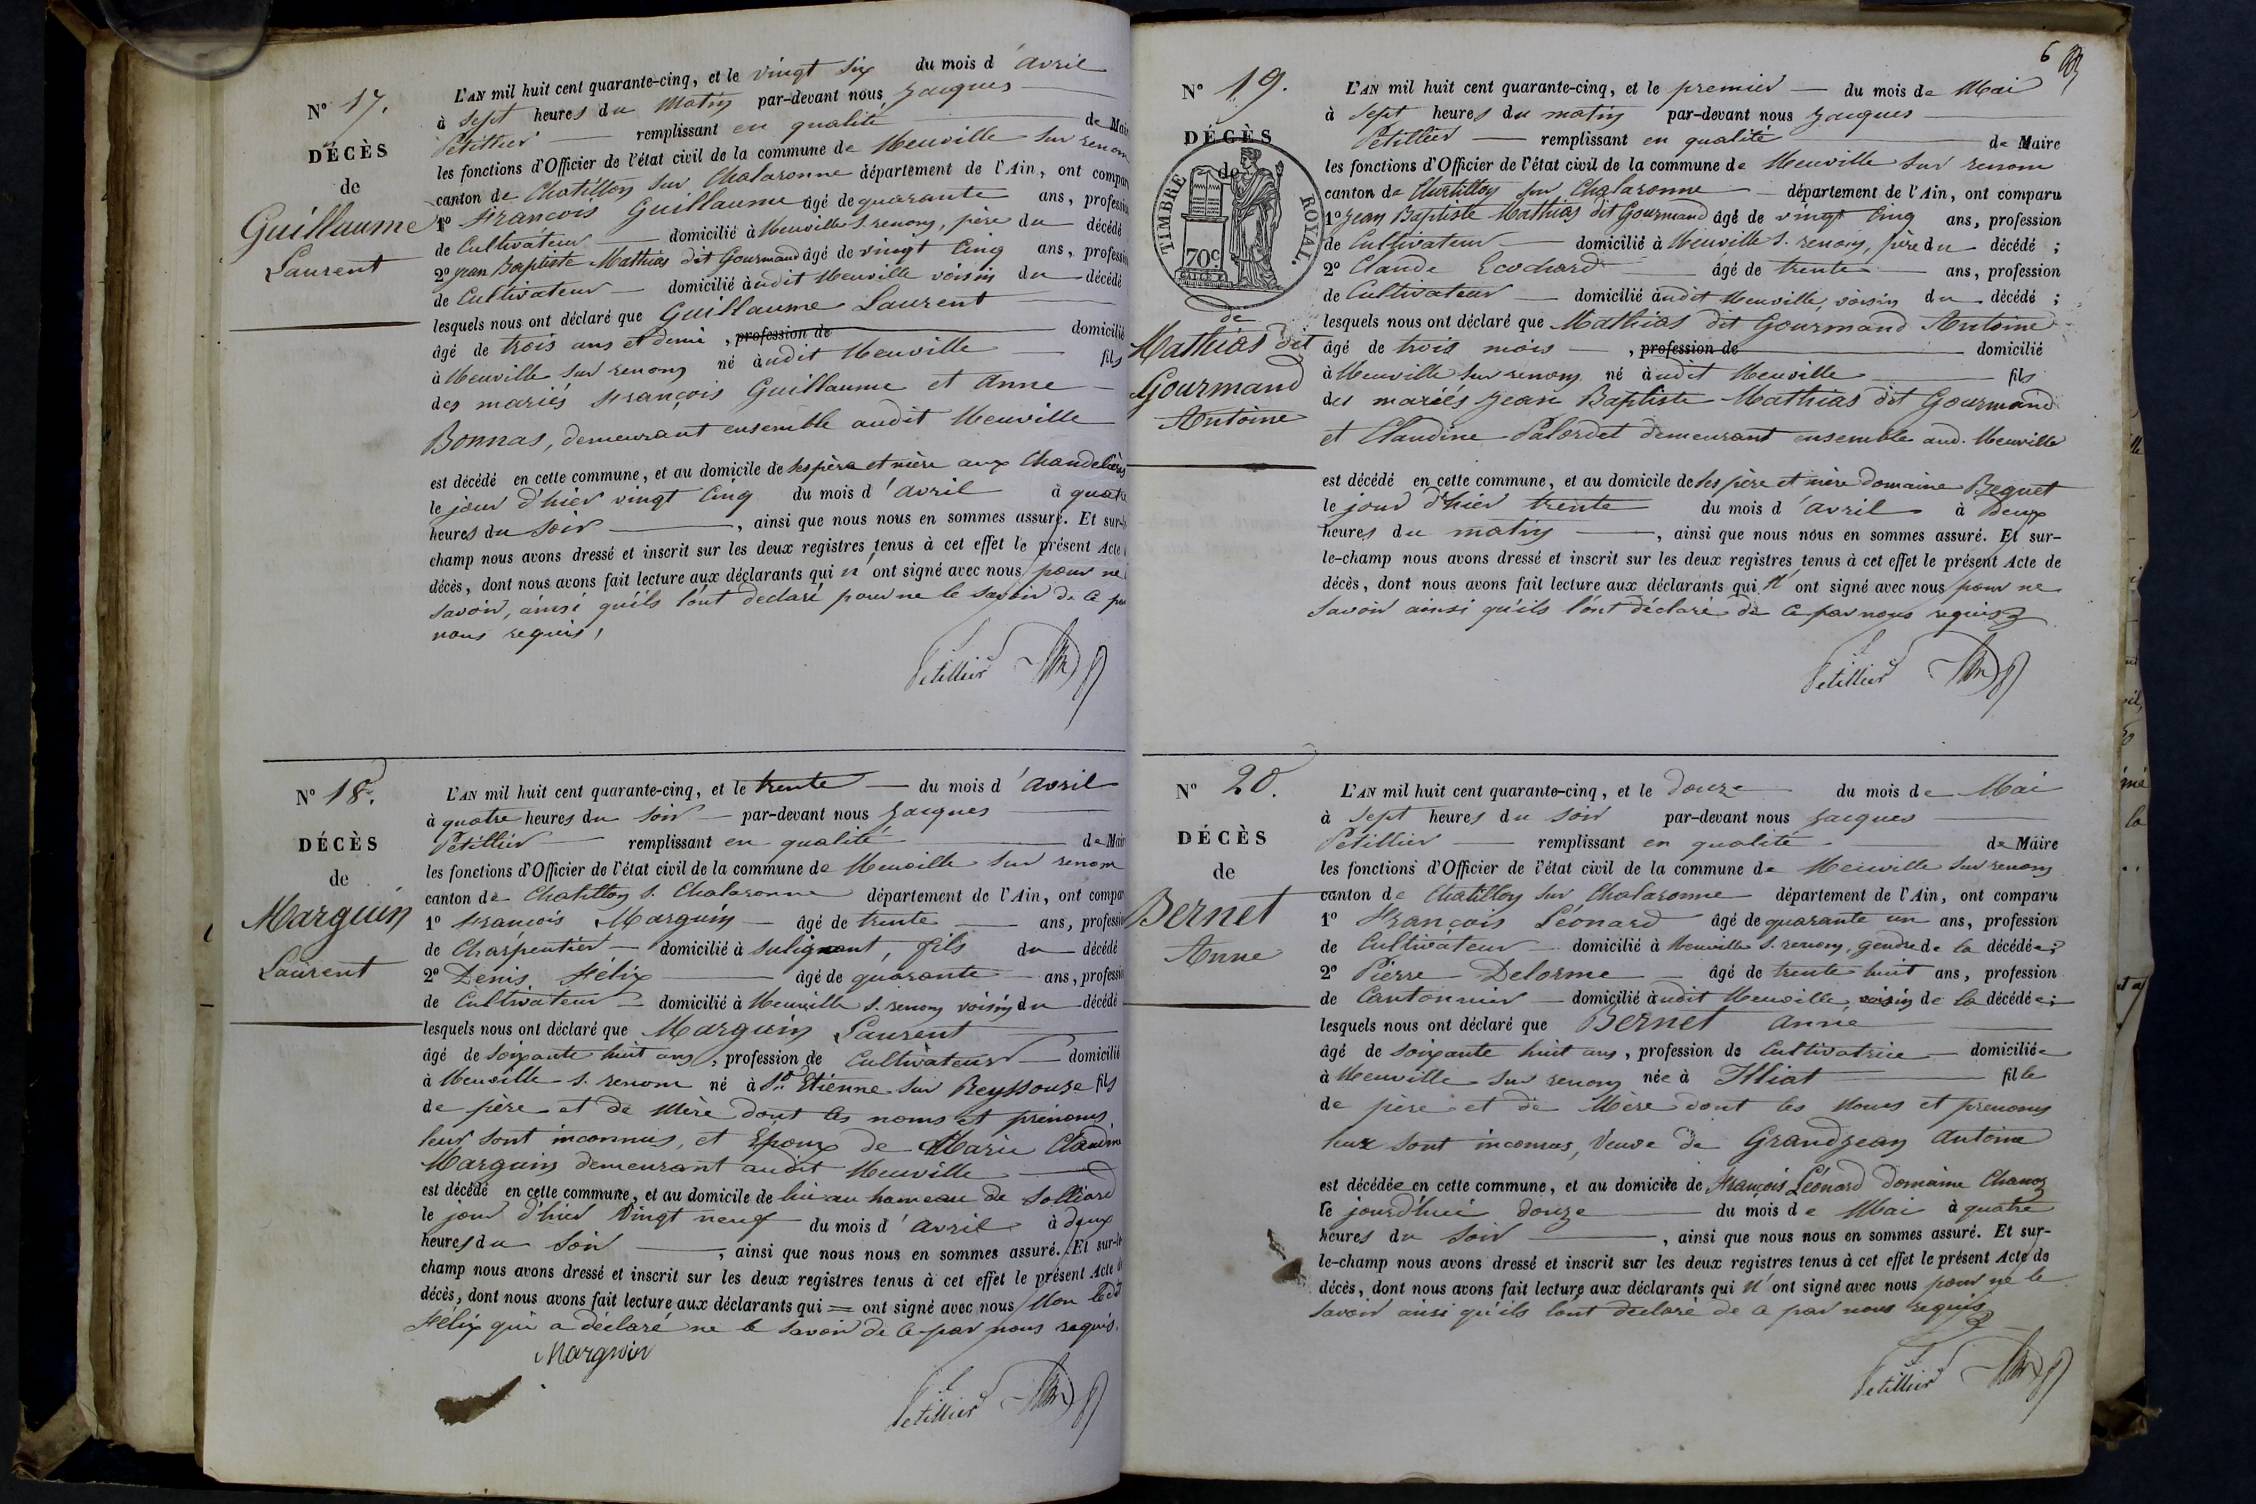 N° 17.
DÉCÈS
de
Guillaume
Laurent
L'AN mil huit cent quarante-cinq, et le vingt six du mois d'avril
à sept heures du matin par-devant nous Jacques
Petillier remplissant en qualité de Maire
les fonctions d'Officier de l'état civil de la commune de Neuville sur renom
canton de Chatillon sur Chalaronne département de l'Ain, ont compar
1° François Guillaume âgé de quarante ans, profession
de Cultivateur domicilié à Neuville s. renom, père du décédé
2° Jean Baptiste Mathias dit Gourmand âgé de vingt cinq ans, profession
de Cultivateur domicilié audit Neuville voisin du décédé
lesquels nous ont déclaré que Guillaume Laurent
âgé de trois ans et demi, profession de domicilié
à Neuville sur renom né audit Neuville fils
des mariés François Guillaume et Anne
Bonnas, demeurant ensemble audit Neuville
est décédé en cette commune, et au domicile de ses père et mère aux Chandeliers
le jour d'hier vingt cinq du mois d'avril à quatre
heures du soir, ainsi que nous nous en sommes assuré. Et sur-le-
champ nous avons dressé et inscrit sur les deux registres tenus à cet effet le présent Acte
décès, dont nous avons fait lecture aux déclarants qui n'ont signé avec nous pour ne
savoir, ainsi qu'ils l'ont declaré pour ne le savoir de ce par
nous requis,
Petillier
N° 18.
DÉCÈS
de
Marguin
Laurent
L'AN mil huit cent quarante-cinq, et le trente du mois d'avril
à quatre heures du soir par-devant nous Jacques
Petillier remplissant en qualité de Maire
les fonctions d'Officier de l'état civil de la commune de Neuville sur renom
canton de Chatillon s. Chalaronne département de l'Ain, ont compar
1° François Marguin âgé de trente ans, profession
de Charpentier domicilié à Sulignent, fils du décédé
2° Denis Félix âgé de quarante ans, profession
de Cultivateur domicilié à Neuville s. renom voisin du décédé
lesquels nous ont déclaré que Marguin Laurent
âgé de soixante huit ans, profession de Cultivateur domicilié
à Neuville s. renom né à St. Etienne sur Reyssouse fils
de père et de Mère dont les noms et prénoms
leur sont inconnus, et Epoux de Marie Claudine
Marguin demeurant audit Neuville
est décédé en cette commune, et au domicile de lui au hameau de Solliard
le jour d'hier vingt neuf du mois d'avril à deux
heures du soir, ainsi que nous nous en sommes assuré. Et sur-le-
champ nous avons dressé et inscrit sur les deux registres tenus à cet effet le présent Acte de
décès, dont nous avons fait lecture aux déclarants qui = ont signé avec nous Non ledit
Félix qui a déclaré ne le savoir de ce par nous requis.
Marguin
Petillier
6
N° 19.
DÉCÈS
de
TIMBRE ROYAL.
70c.
de
Mathias dit
Gourmand
Antoine
L'AN mil huit cent quarante-cinq, et le premier du mois de Mai
à sept heures du matin par-devant nous Jacques
Petillier remplissant en qualité de Maire
les fonctions d'Officier de l'état civil de la commune de Neuville sur renom
canton de Chatillon sur Chalaronne département de l'Ain, ont comparu
1° Jean Baptiste Mathias dit Gourmand âgé de vingt cinq ans, profession
de Cultivateur domicilié à Neuville s. renom, père du décédé ;
2° Claude Ecochard âgé de trente ans, profession
de Cultivateur domicilié audit Neuville, voisin du décédé ;
lesquels nous ont déclaré que Mathias dit Gourmand Antoine
âgé de trois mois, profession de domicilié
à Neuville sur renom né audit Neuville fils
des mariés Jean Baptiste Mathias dit Gourmand
et Claudine Palordet demeurant ensemble aud. Neuville
est décédé en cette commune, et au domicile de ses père et mère domaine Beguet
le jour d'hier trente du mois d'avril à Deux
heures du matin, ainsi que nous nous en sommes assuré. Et sur-
le-champ nous avons dressé et inscrit sur les deux registres tenus à cet effet le présent Acte de
décès, dont nous avons fait lecture aux déclarants qui n'ont signé avec nous pour ne
savoir ainsi qu'ils l'ont déclaré de ce par nous requis
Petillier
N° 20.
DÉCÈS
de
Bernet
Anne
L'AN mil huit cent quarante-cinq, et le douze du mois de Mai
à sept heures du soir par-devant nous Jacques
Petillier remplissant en qualité de Maire
les fonctions d'Officier de l'état civil de la commune de Neuville sur renom
canton de Chatillon sur Chalaronne département de l'Ain, ont comparu
1° François Léonard âgé de quarante un ans, profession
de Cultivateur domicilié à Neuville s. renom, gendre de la décédée ;
2° Pierre Delorme âgé de trente huit ans, profession
de Cantonnier domicilié audit Neuville, voisin de la décédée ;
lesquels nous ont déclaré que Bernet Anne
âgé de soixante huit ans, profession de Cultivatrice domiciliée
à Neuville sur renom née à Illiat fille
de père et de Mère dont les Noms et prenoms
leux sont inconnus, Veuve de Grandjean Antoine
est décédée en cette commune, et au domicile de François Léonard domaine Chanoz
le jourd'hui douze du mois de Mai à quatre
heures du soir, ainsi que nous nous en sommes assuré. Et sur-
le-champ nous avons dressé et inscrit sur les deux registres tenus à cet effet le présent Acte de
décès, dont nous avons fait lecture aux déclarants qui n'ont signé avec nous pour ne le
savoir ainsi qu'ils l'ont déclaré de ce par nous requis
Petillier